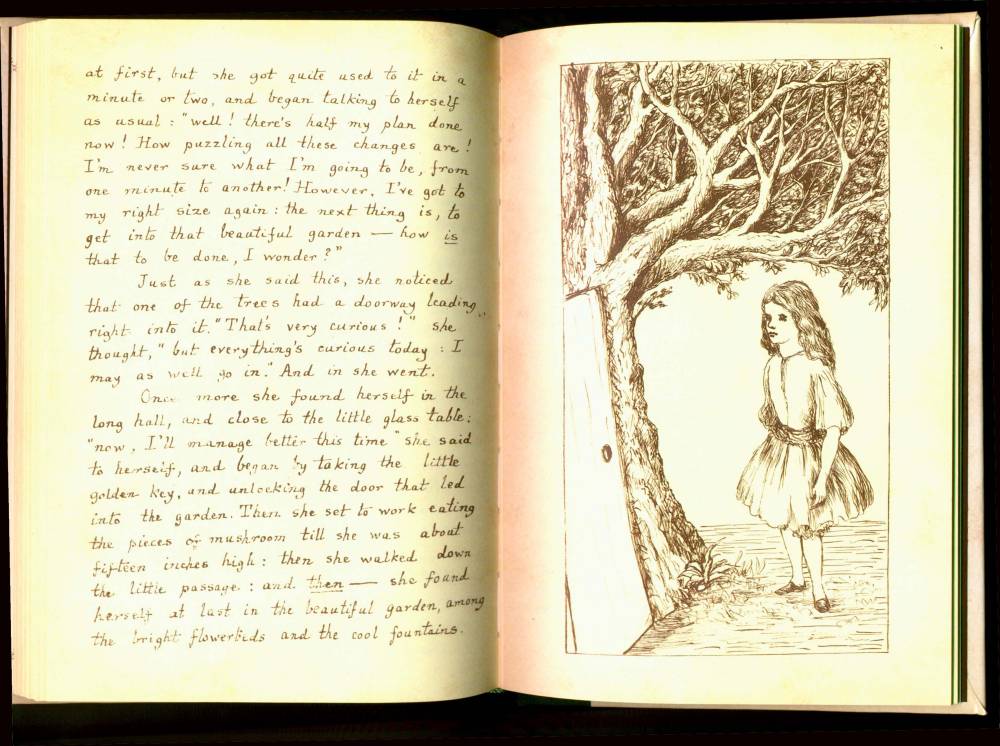 at first, but she got quite used to it in a
minute or two, and began talking to herself
as usual : "well ! there's half my plan done
now ! How puzzling all these changes are !
I'm never sure what I'm going to be, from
one minute to another! However, I've got to
my right size again : the next thing is, to
get into that beautiful garden — how is
that to be done, I wonder ?"
Just as she said this, she noticed
that one of the trees had a doorway leading
right into it. "That's very curious !" she
thought, "but everything's curious today : I
may as well go in." And in she went.
Once more she found herself in the
long hall, and close to the little glass table :
"now, I'll manage better this time" she said
to herself, and began by taking the little
golden key, and unlocking the door that led
into the garden. Then she set to work eating
the pieces of mushroom till she was about
fifteen inches high : then she walked down
the little passage : and then — she found
herself at last in the beautiful garden, among
the bright flowerbeds and the cool fountains.